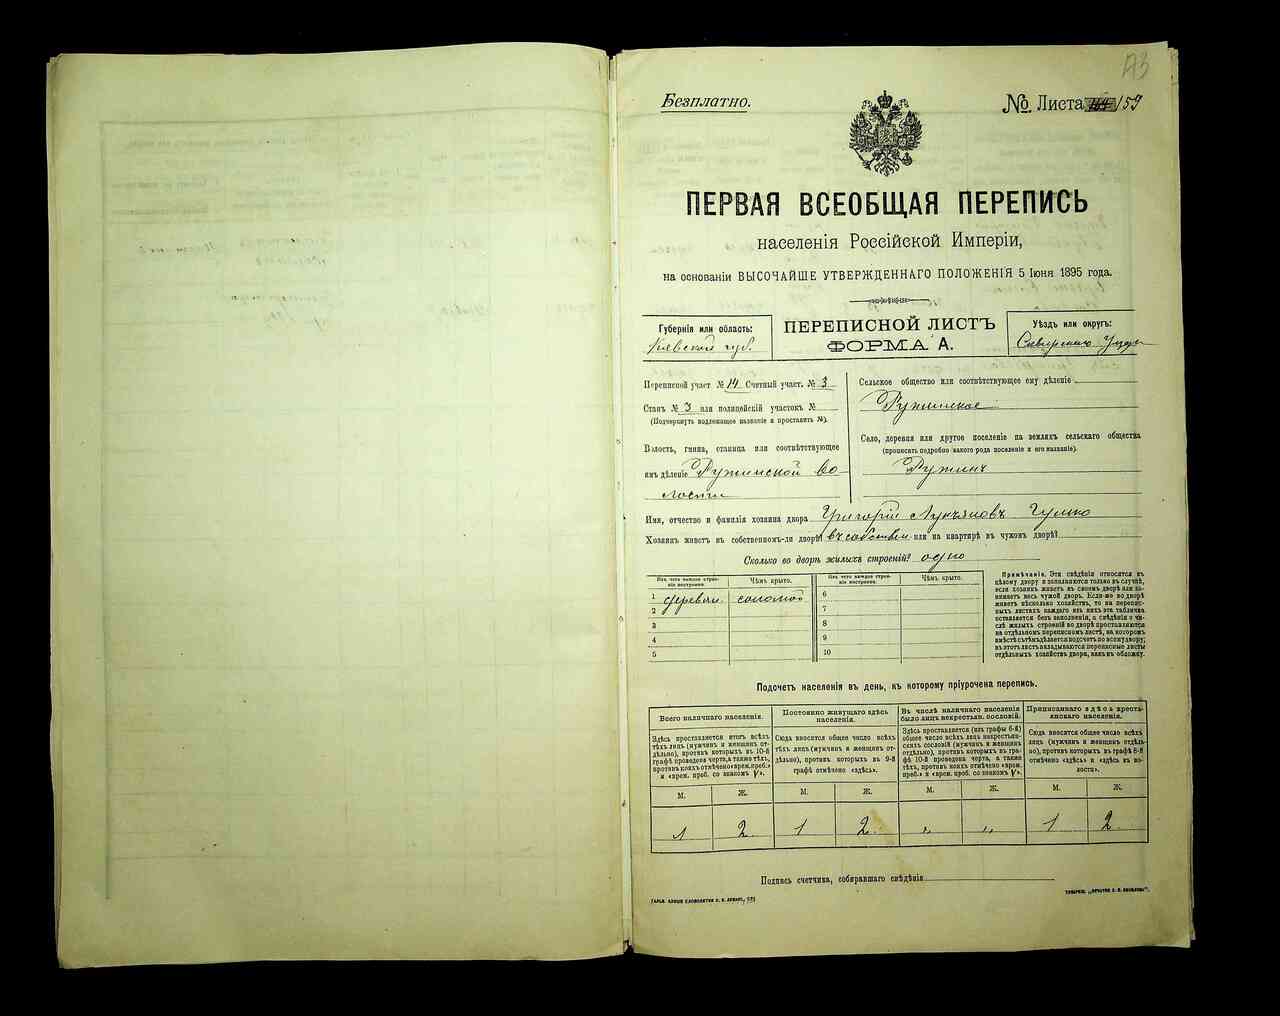 173
Безплатно.
№ Листа 159
ПЕРВАЯ ВСЕОБЩАЯ ПЕРЕПИСЬ
населенія Россійской Имперіи,
на основаніи ВЫСОЧАЙШЕ УТВЕРЖДЕННАГО ПОЛОЖЕНІЯ 5 Іюня 1895 года.
Губернія или область:
Кіевской губ.
ПЕРЕПИСНОЙ ЛИСТЪ
ФОРМА А.
Уѣздъ или округъ:
Переписной участ № 14 Счетный участ. № 3
Станъ № 3 или полицейскій участокъ №
(Подчеркнуть подлежащее названіе и проставить №).
Волость, гмина, станица или соотвѣтствующее
имъ дѣленіе Ружинской во-
лости
Сельское общество или соотвѣтствующее ему дѣленіе
Ружинское
Село, деревня или другое поселеніе на земляхъ сельскаго общества
(прописать подробно какого рода поселеніе и его названіе).
Ружинъ
Имя, отчество и фамилія хозяина двора Григорій Лукъяновъ Гулко
Хозяинъ живетъ въ собственномъ-ли дворѣ въ собствен или на квартирѣ въ чужомъ дворѣ?
Сколько во дворѣ жилыхъ строеній? одно
Изъ чего каждое строе-
ніе построено.
Чѣмъ крыто.
Изъ чего каждое строе-
ніе построено.
Чѣмъ крыто.
1 деревян. соломой
2
3
4
5
6
7
8
9
10
Примѣчаніе. Эти свѣдѣнія относятся къ
цѣлому двору и заполняются только въ случаѣ,
если хозяинъ живетъ въ своемъ дворѣ или за-
нимаетъ весь чужой дворъ. Если-же во дворѣ
живетъ нѣсколько хозяйствъ, то на перепис-
ныхъ листахъ каждаго изъ нихъ эта табличка
оставляется безъ заполненія, а свѣдѣнія о чи-
слѣ жилыхъ строеній во дворѣ проставляются
на отдѣльномъ переписномъ листѣ, на которомъ
вмѣстѣ съ тѣмъ дѣлается подсчетъ по всему двору;
въ этотъ листъ вкладываются переписные листы
отдѣльныхъ хозяйствъ двора, какъ въ обложку.
Подсчетъ населенія въ день, къ которому пріурочена перепись.
Всего наличнаго населенія.
Постоянно живущаго здѣсь
населенія.
Въ числѣ наличнаго населенія
было лицъ некрестьян. сословій.
Приписаннаго здѣсь кресть-
янскаго населенія.
Здѣсь проставляется итогъ всѣхъ
тѣхъ лицъ (мужчинъ и женщинъ от-
дѣльно), противъ которыхъ въ 10-й
графѣ проведена черта, а также тѣхъ,
противъ коихъ отмѣчено «врем. преб.»
и «врем. проб. со знакомъ V».
Сюда вносится общее число всѣхъ
тѣхъ лицъ (мужчинъ и женщинъ от-
дѣльно), противъ которыхъ въ 9-й
графѣ отмѣчено «здѣсь».
Здѣсь проставляется (изъ графы 6-й)
общее число всѣхъ лицъ некрестьян-
скихъ сословій (мужчинъ и женщинъ
отдѣльно), противъ которыхъ въ гра-
фѣ 10-й проведена черта, а также
тѣхъ, противъ коихъ отмѣчено «врем.
преб.» и «врем. проб. со знакомъ V».
Сюда вносится общее число всѣхъ
лицъ (мужчинъ и женщинъ отдѣль-
но), противъ которыхъ въ графѣ 8-й
отмѣчено «здѣсь» и «здѣсь въ во-
лости».
М. Ж. М. Ж. М. Ж. М. Ж.
1 2 1 2 „ „ 1 2
Подпись счетчика, собиравшаго свѣдѣнія